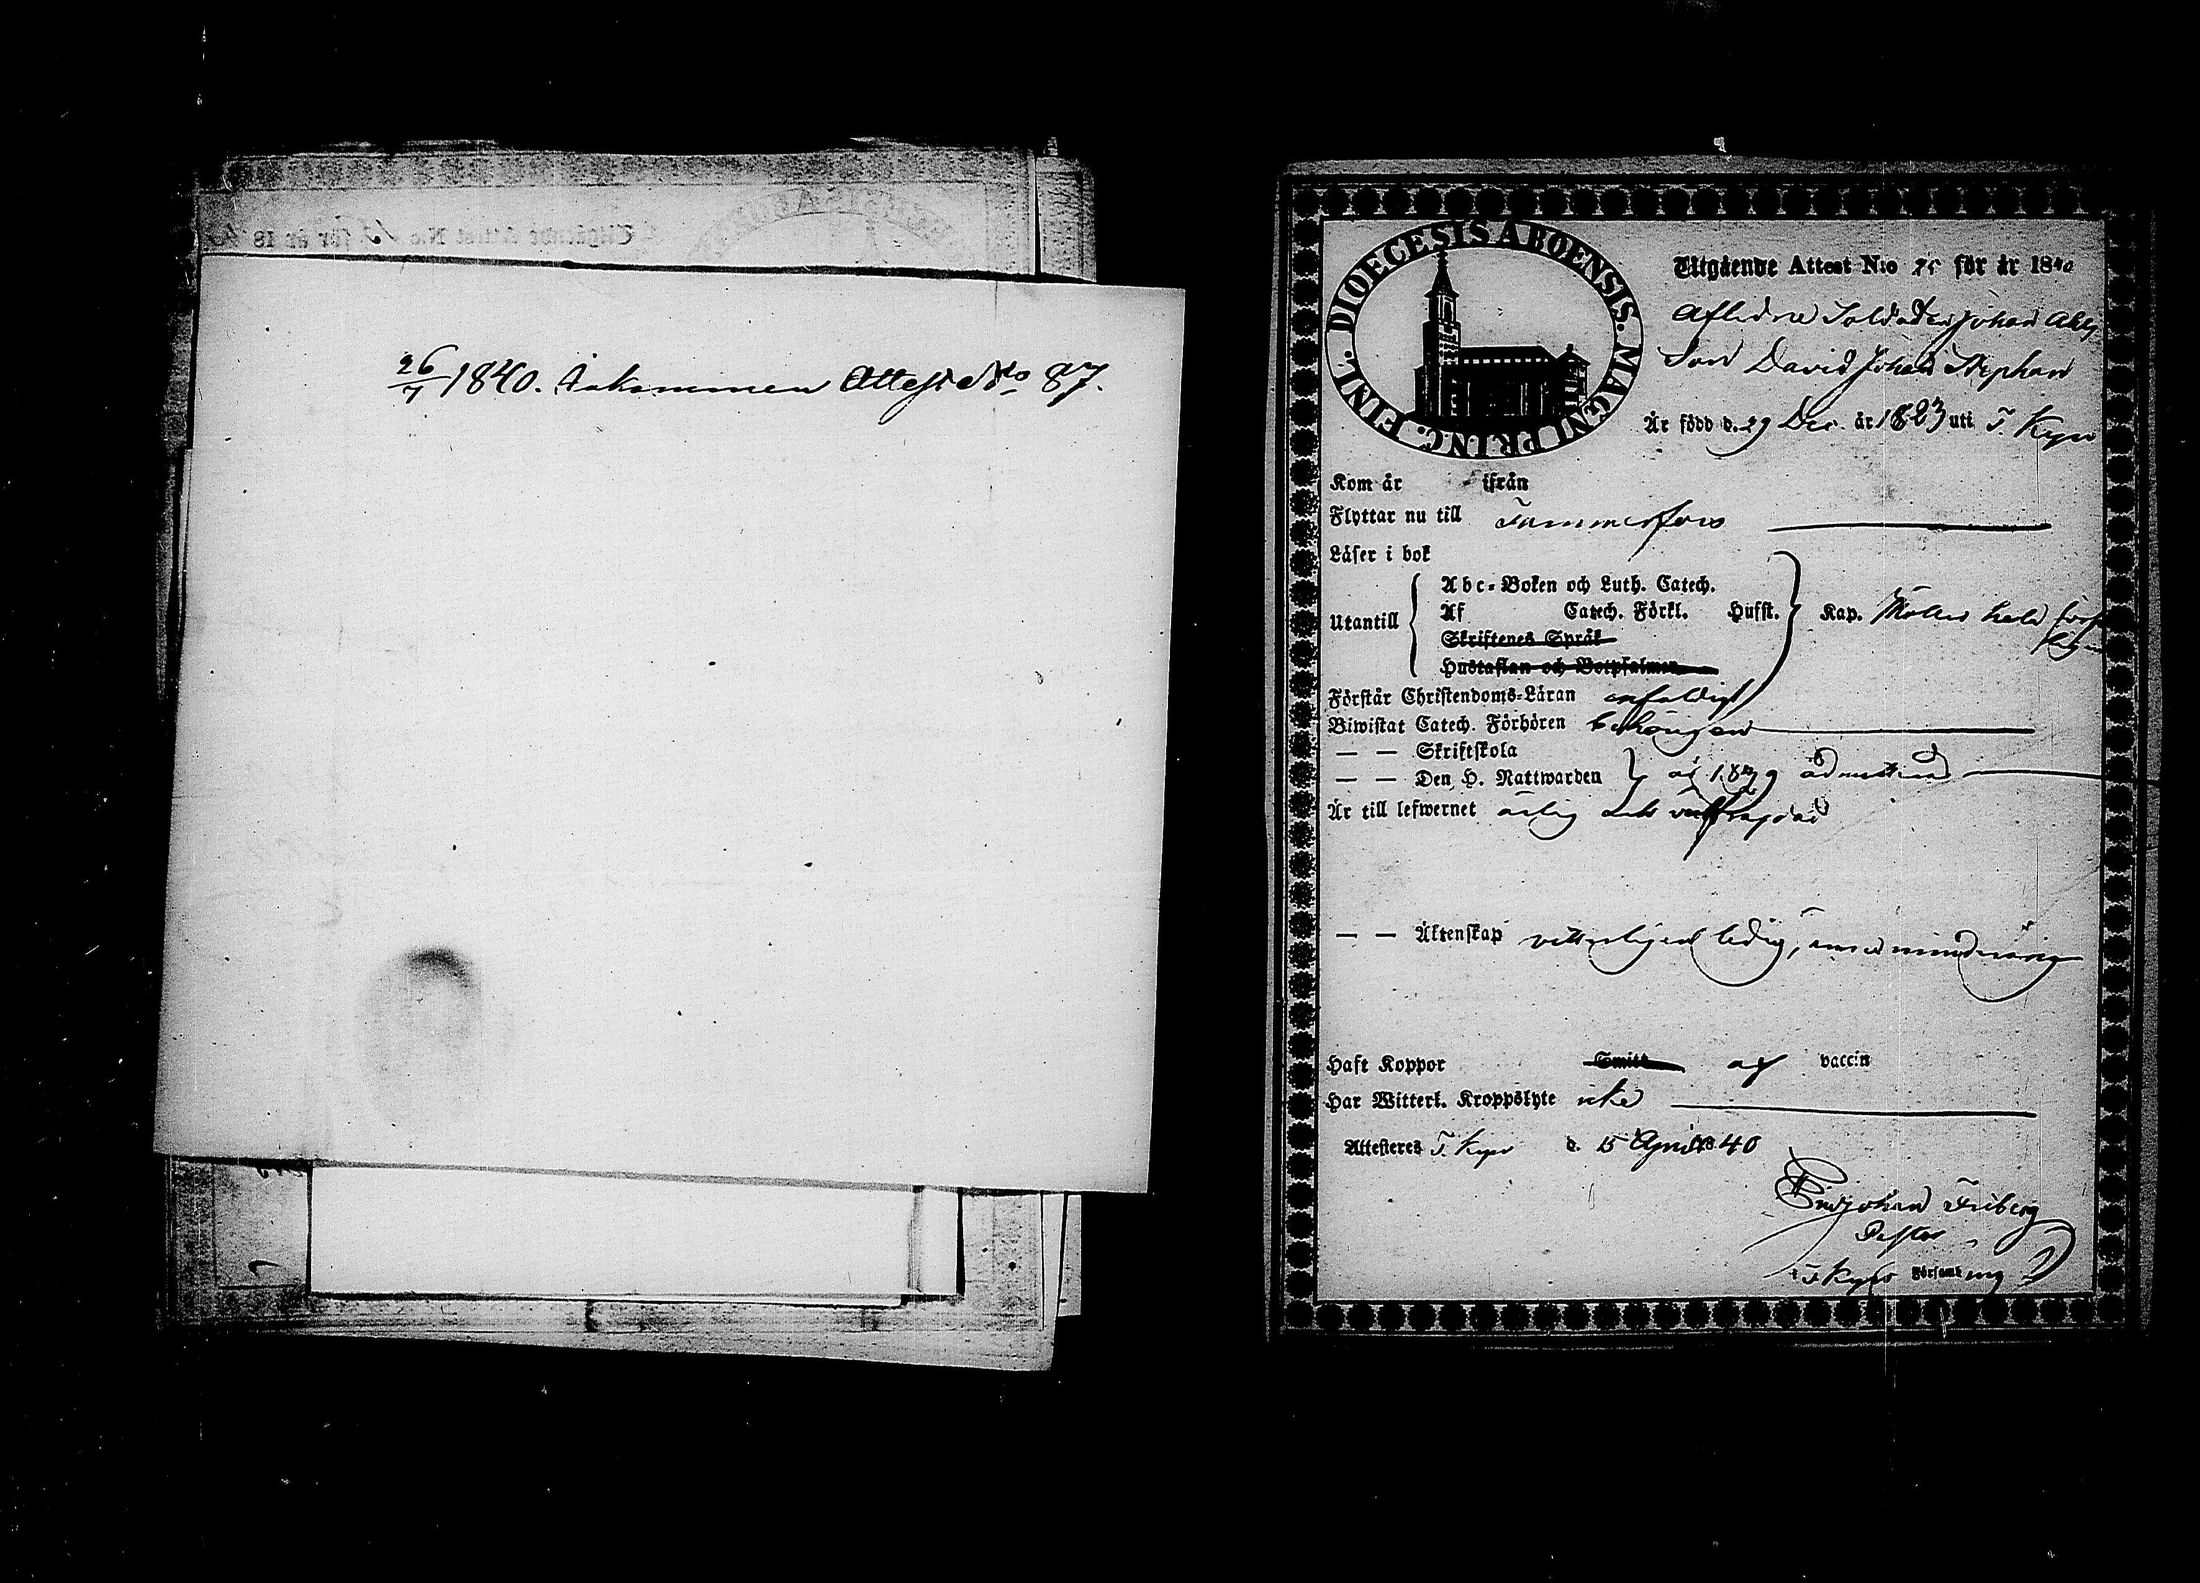 26/7 1840. Inkommen Attest No 87.
DIOECESIS ABOENSIS. MAGNI PRINC. FINL.
Utgående Attest N:o 75 för år 1840
Aflidne Soldaten Johan
Son David Johan Stephan
Är född d. 29 Dec. år 1823 uti T. Kyro
Kom år ifrån
Flyttar nu till Tammerfors
Läser i bok
Utantill
Abc-Boken och Luth. Catech.
Af Catech. Förkl. Hufst. Kap. hela
Skriftenes Språk
Hustaflan och Botpsalmen
Förstår Christendoms-Läran enfaldigt
Biwistat Catech. Förhören behörigen
— — Skriftskola
— — Den H. Nattwarden år 1839 admitterad
Är till lefwernet ärlig och
— — Äktenskap vitterligen ledig, minderårig
Haft Koppor Smitt af vaccin
Har Witterl. Kroppslyte icke
Attesteres T. Kyro d. 15 April 1840
Johan Friberg
Pastor
T. Kyro Församl ing